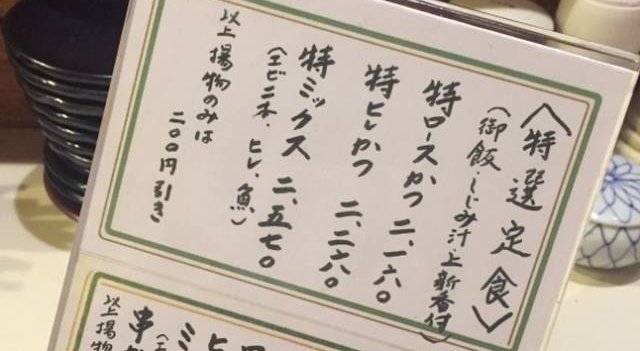 〈特選定食〉
（御飯・しじみ汁・上新香付）
特ロースかつ 二、一六〇
特ヒレかつ 二、二六〇
特ミックス 二、五七〇
（エビ二本・ヒレ、魚）
以上揚物のみは
二〇〇円引き
ミ
串
以上揚物